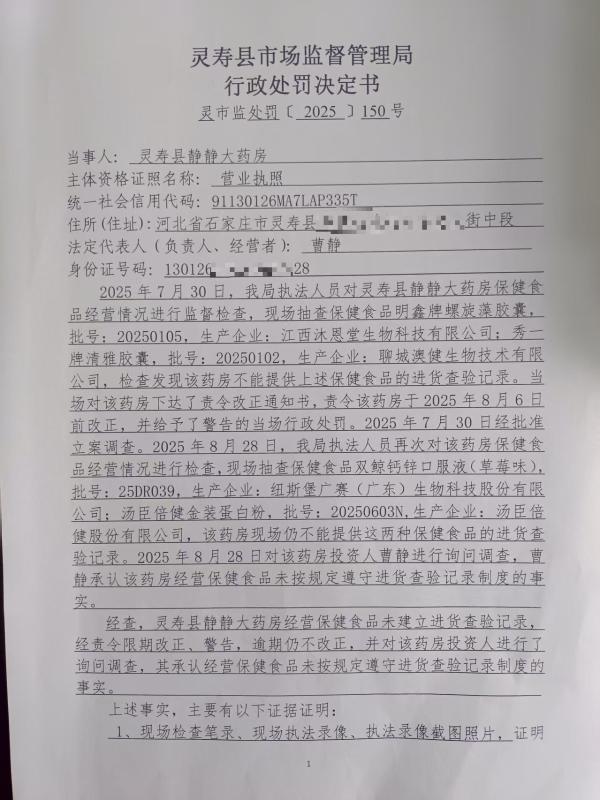 灵寿县市场监督管理局
行政处罚决定书
灵市监处罚〔 2025 〕150号
当事人: 灵寿县静静大药房
主体资格证照名称: 营业执照
统一社会信用代码: 91130126MA7LAP335T
住所(住址):河北省石家庄市灵寿县 街中段
法定代表人(负责人、经营者): 曹静
身份证号码: 130126 28
2025年7月30日，我局执法人员对灵寿县静静大药房保健食
品经营情况进行监督检查，现场抽查保健食品明鑫牌螺旋藻胶囊，
批号：20250105，生产企业：江西沐恩堂生物科技有限公司；秀一
牌清雅胶囊，批号：20250102，生产企业：聊城澳健生物技术有限
公司，检查发现该药房不能提供上述保健食品的进货查验记录。当
场对该药房下达了责令改正通知书，责令该药房于2025年8月6日
前改正，并给予了警告的当场行政处罚。2025年7月30日经批准
立案调查。2025年8月28日，我局执法人员再次对该药房保健食
品经营情况进行检查，现场抽查保健食品双鲸钙锌口服液（草莓味），
批号：25DR039，生产企业：纽斯堡广赛（广东）生物科技股份有限
公司；汤臣倍健金装蛋白粉，批号：20250603N,生产企业：汤臣倍
健股份有限公司，该药房现场仍不能提供这两种保健食品的进货查
验记录。2025年8月28日对该药房投资人曹静进行询问调查，曹
静承认该药房经营保健食品未按规定遵守进货查验记录制度的事
实。
经查，灵寿县静静大药房经营保健食品未建立进货查验记录，
经责令限期改正、警告，逾期仍不改正，并对该药房投资人进行了
询问调查，其承认经营保健食品未按规定遵守进货查验记录制度的
事实。
上述事实，主要有以下证据证明：
1、现场检查笔录、现场执法录像、执法录像截图照片，证明
1